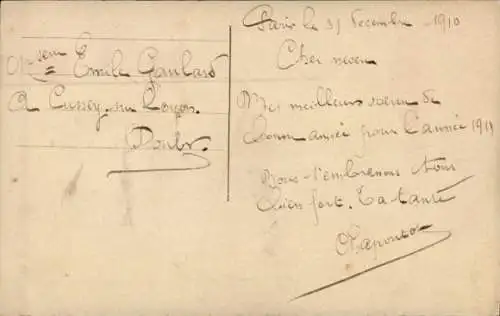 Paris le 31 Decembre 1910
Cher neveu
Mes meilleurs voeux de
bonne année pour l'année 1911
Nous t'embrassons tous
bien fort. Ta tante
Msieur Emile Gaulard
A Cussey sur l'ognon
Doubs